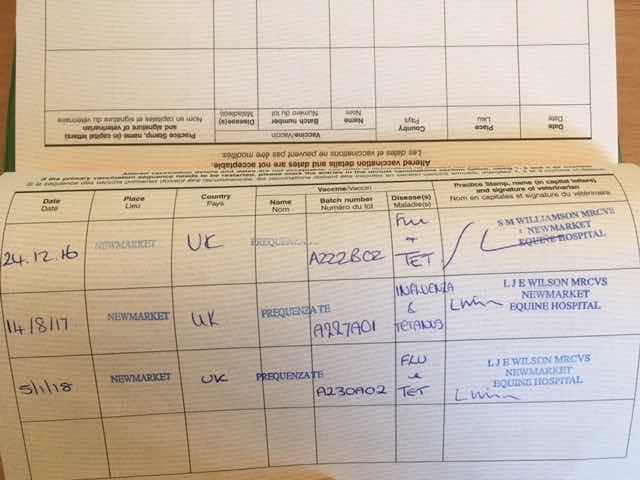 Altered vaccination details and dates are not acceptable.
Les dates et vaccinations ne peuvent pas être modifiés.
Date
Date
Place
Lieu
Country
Pays
Vaccine/Vaccin
Name
Nom
Batch number
Numéro du lot
Disease(s)
Maladie(s)
Practice Stamp, name (in capital letters)
and signature of veterinarian
Nom en capitales et signature du vétérinaire
If the primary vaccination sequence needs to be restarted, please mark the entries in the annual vaccinations section below
Date
Date
Place
Lieu
Country
Pays
Vaccine/Vaccin
Name
Nom
Batch number
Numéro du lot
Disease(s)
Maladie(s)
Practice Stamp, name (in capital letters)
and signature of veterinarian
Nom en capitales et signature du vétérinaire
24.12.16
NEWMARKET
UK
PREQUENZATE
A222BC2
FLU
+
TET
S M WILLIAMSON MRCVS
NEWMARKET
EQUINE HOSPITAL
14/8/17
NEWMARKET
UK
PREQUENZATE
A227A01
INFLUENZA
&
TETANUS
L J E WILSON MRCVS
NEWMARKET
EQUINE HOSPITAL
5/1/18
NEWMARKET
UK
PREQUENZATE
A230A02
FLU
&
TET
L J E WILSON MRCVS
NEWMARKET
EQUINE HOSPITAL